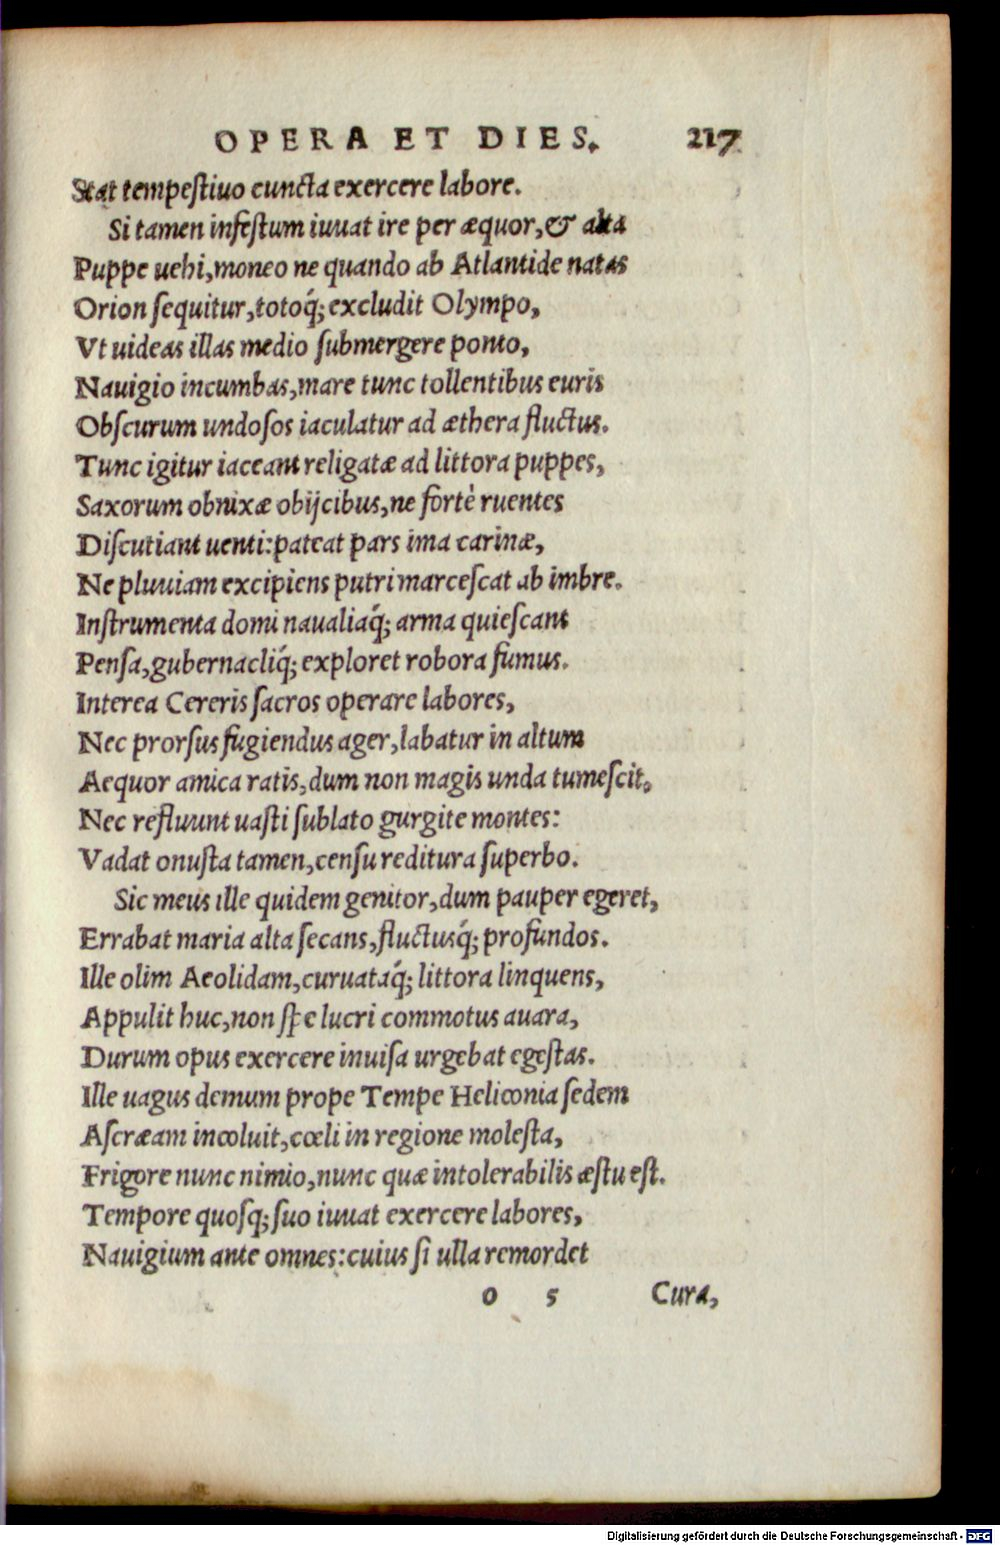 OPERA ET DIES. 217
Stat tempeſtiuo cuncta exercere labore.
Si tamen infeſtum iuuat ire per æquor, & alta
Puppe uehi, moneo ne quando ab Atlantide natas
Orion ſequitur, totoq́; excludit Olympo,
Vt uideas illas medio ſubmergere ponto,
Nauigio incumbas, mare tunc tollentibus euris
Obſcurum undoſos iaculatur ad æthera fluctus.
Tunc igitur iaceant religatæ ad littora puppes,
Saxorum obnixæ obijcibus, ne fortè ruentes
Diſcutiant uenti: pateat pars ima carinæ,
Ne pluuiam excipiens putri marceſcat ab imbre.
Inſtrumenta domi naualiaq́; arma quieſcant
Penſa, gubernacliq́; exploret robora fumus.
Interea Cereris ſacros operare labores,
Nec prorſus fugiendus ager, labatur in altum
Aequor amica ratis, dum non magis unda tumeſcit,
Nec refluunt uaſti ſublato gurgite montes:
Vadat onuſta tamen, cenſu reditura ſuperbo.
Sic meus ille quidem genitor, dum pauper egeret,
Errabat maria alta ſecans, fluctusq́; profundos.
Ille olim Aeolidam, curuataq́; littora linquens,
Appulit huc, non ſpe lucri commotus auara,
Durum opus exercere inuiſa urgebat egeſtas.
Ille uagus demum prope Tempe Heliconia ſedem
Aſcræam incoluit, cœli in regione moleſta,
Frigore nunc nimio, nunc quæ intolerabilis æſtu eſt.
Tempore quoſq; ſuo iuuat exercere labores,
Nauigium ante omnes: cuius ſi ulla remordet
o 5 Cura,
Digitalisierung gefördert durch die Deutsche Forschungsgemeinschaft - DFG